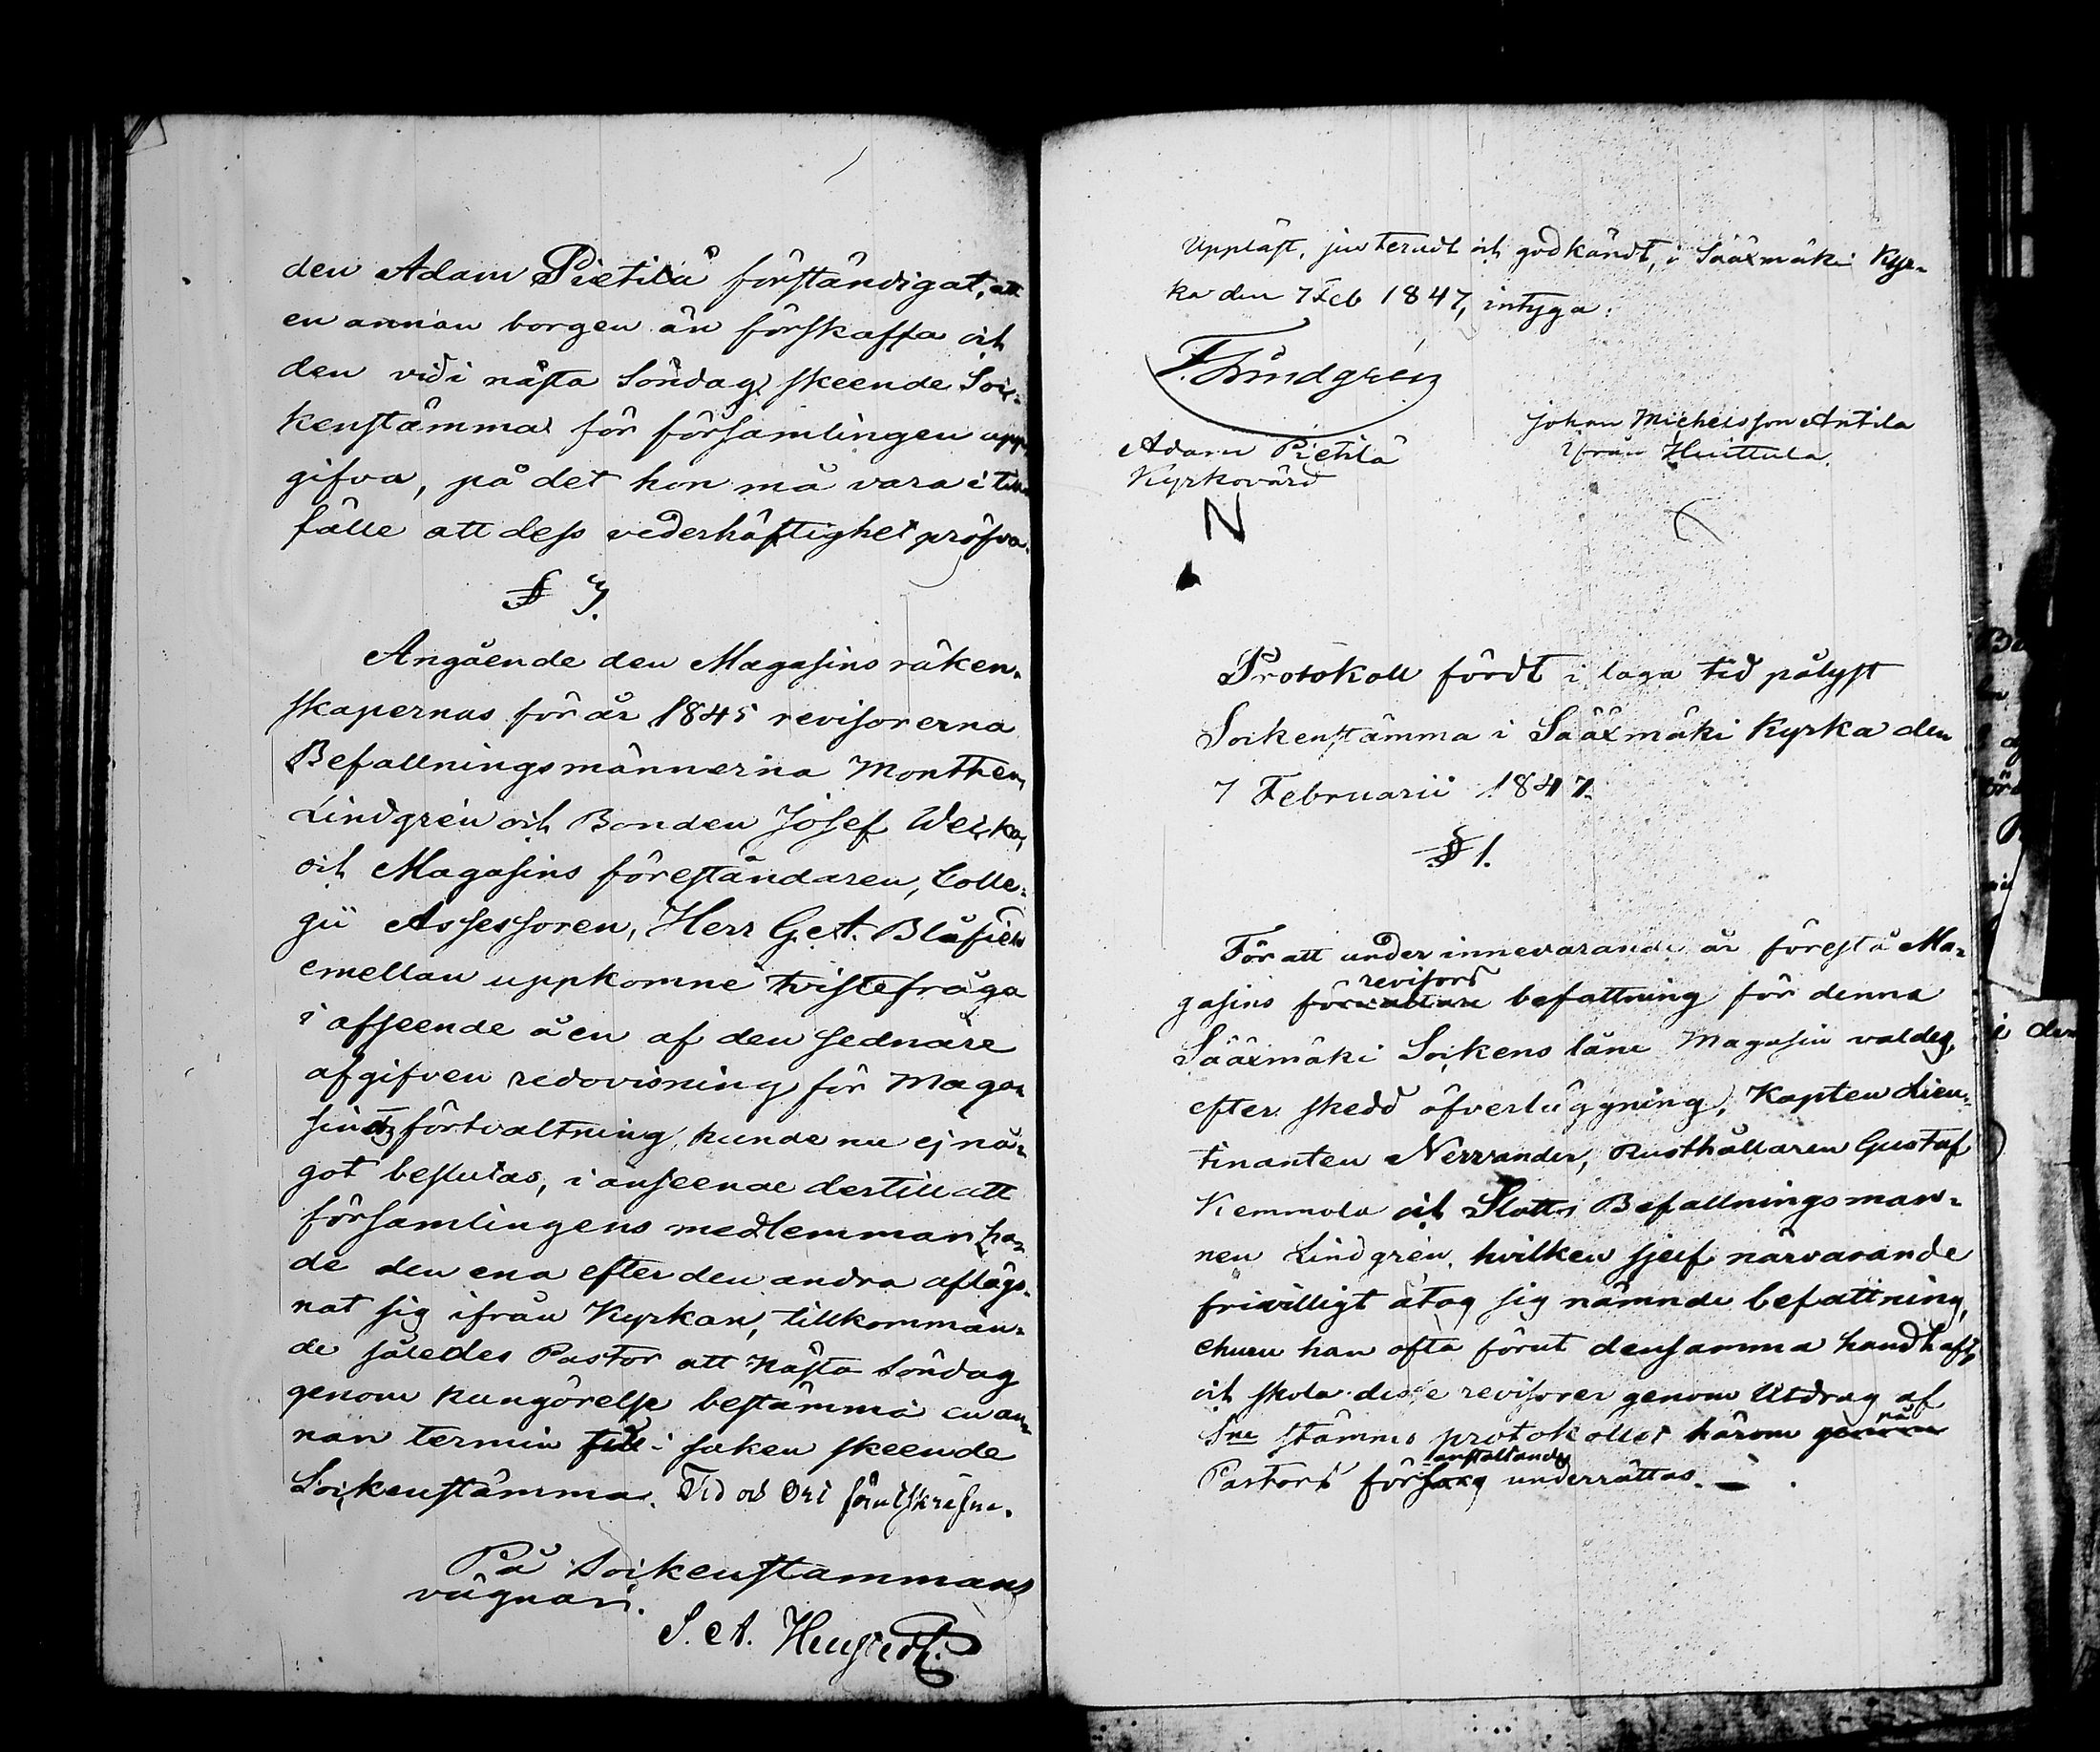 den Adam Pietilä förständigat, att
en annan borgen än förskaffa och
den vid i nästa Söndag skeende Soc-
kenstämma för församlingen upp-
gifva, på det hon må vara i till-
fälle att dess vederhäftighet pröfva.
§ 7.
Angående den Magasins räken-
skapernas för år 1845 revisorerna
Befallningsmännerna Monthen,
Lindgrén och Bonden Josef
och Magasins föreståndaren, Colle-
gii Assessoren, Herr G. A. Blåfield
emellan uppkomne tvistefråga
i afseende å en af den sednare
afgifven redovisning för Maga-
sins förvaltning kunde nu ej nå-
got beslutas, i anseende dertill att
församlingens medlemmar ha-
de den ena efter den andra aflägs-
nat sig ifrån Kyrkan, tillkomman-
de således Pastor att nästa Söndag
genom kungörelse bestämma en an-
nan termin till i saken skeende
Sockenstämma. Tid och Ort förutskrefne.
På Sockenstämmans
vägnar.
S. A.
Uppläst, justeradt och godkändt, i Sääxmäki Kyr-
ka den 7 Feb 1847, intyga:
F. Lindgrén
Johan Michelsson Antila
ifrån Huittula.
Adam Pietilä
Kyrkovärd
N
Protokoll fördt i laga tid pålyst
Sockenstämma i Sääxmäki Kyrka den
7 Februarii 1847.
§ 1.
För att under innevarande år förestå Ma-
revisors
gasins förvaltare befattning för denna
Sääxmäki Sockens låne Magasin valdes,
efter skedd öfverläggning, Kapten Lieu-
tinanten Nervander, Rusthållaren Gustaf
Kemmola och Slotts Befallningsman-
nen Lindgrén, hvilken sjelf närvarande
frivilligt åtog sig nämnde befattning,
ehuru han ofta förut densamma handhaft,
och skola desse revisorer genom Utdrag af
Sne stämmo protokollet härom genom på
anstaltande
Pastors försorg underrättas.